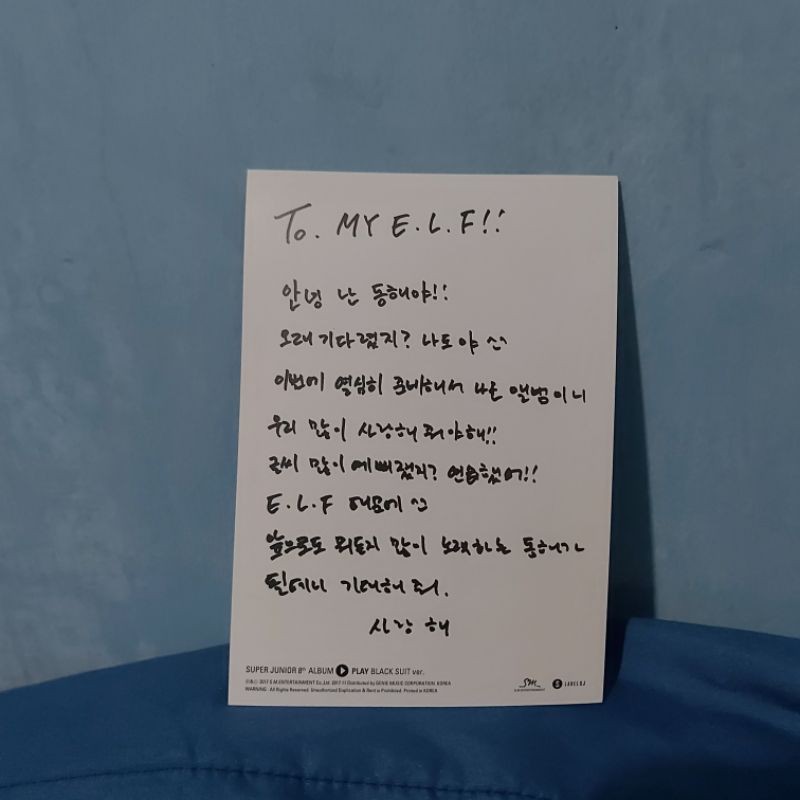 To. MY E.L.F!!
안녕 난 동해야!!
오래 기다렸지? 나도야 ^^
이번에 열심히 준비해서 나온 앨범이니
우리 많이 사랑해 줘야해!!
글씨 많이 예뻐졌지? 연습했어!!
E.L.F 때문에 ^^
앞으로도 뭐든지 많이 노력하는 동해가
될테니 기대해 줘.
사랑해
SUPER JUNIOR 8th ALBUM PLAY BLACK SUIT ver.
℗&© 2017 S.M.ENTERTAINMENT Co.,Ltd. 2017.11 Distributed by GENIE MUSIC CORPORATION, KOREA
WARNING : All Rights Reserved. Unauthorized Duplication & Rent is Prohibited. Printed in KOREA
SM
S.M.ENTERTAINMENT
LABEL SJ